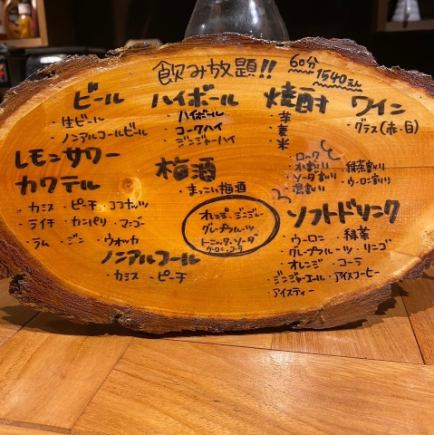 飲み放題!! 60分 1540えん
ビール
・生ビール
・ノンアルコールビール
ハイボール
・ハイボール
・コークハイ
・ジンジャーハイ
焼酎
・芋
・麦
・米
・ロック
・水割り
・ソーダ割り
・お湯割り
・緑茶割り
・ウーロン割り
ワイン
・グラス(赤・白)
レモンサワー
カクテル
・カシス ・ピーチ ・ココナッツ
・ライチ ・カンパリ ・マンゴー
・ラム ・ジン ・ウォッカ
梅酒
・まっこい梅酒
オレンジ、ジンジャー
グレープフルーツ
トニック、ソーダ
ウーロン、コーラ
ノンアルコール
・カシス ・ピーチ
ソフトドリンク
・ウーロン ・緑茶
・グレープフルーツ ・リンゴ
・オレンジ ・コーラ
・ジンジャエール ・アイスコーヒー
・アイスティー